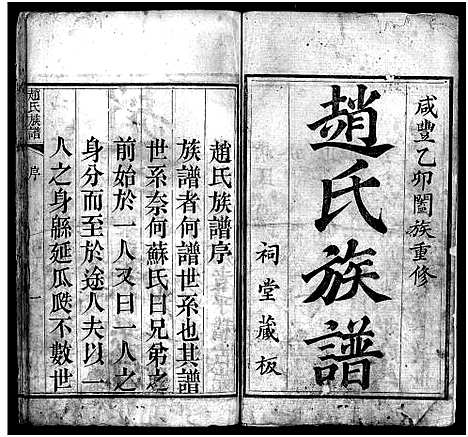 咸豐乙卯闔族重修
趙氏族譜
祠堂藏板
趙氏族譜序
族譜者何譜世系也其譜
世系奈何蘇氏曰兄弟之
前始於一人又曰一人之
身分而至於途人夫以一
人之身緜延瓜瓞不數世
趙氏族譜
序
一